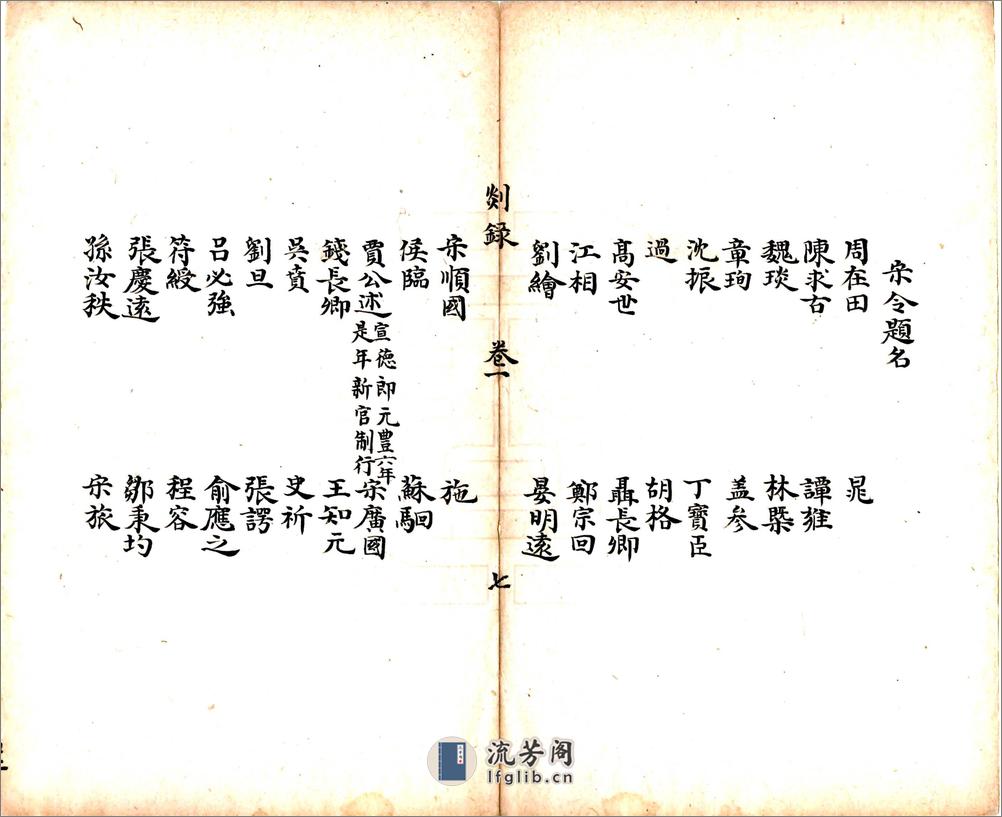 宋令題名
周在田 晁
陳求古 譚雍
魏琰 林槩
章珣 盖參
沈振 丁寶臣
過 胡格
髙安世 聶長卿
江相 鄭宗回
劉繪 晏明遠
剡録 卷一 七
宋順國 施
侯臨 蘇駉
賈公述 宣德郎元豐六年是年新官制行 宋廣國
錢長卿 王知元
吳賁 史祈
劉旦 張諤
呂必強 俞應之
符綬 程容
張慶遠 鄒秉均
孫汝秩 宋旅
流芳阁
lfglib.cn